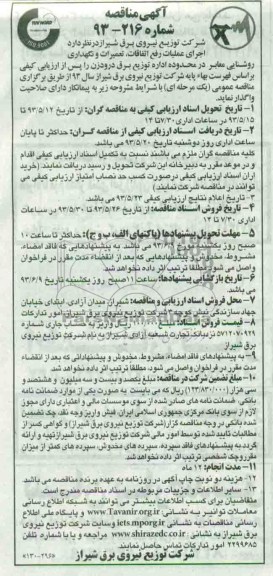 آگهی مناقصه
شماره ۲۱۶-۹۳
شرکت توزیع نیروی برق شیراز درنظر دارد
اجرای عملیات رفع اتفاقات، تعمیرات و نگهداری
روشنایی معابر در محدوده اداره توزیع برق درودزن را پس از ارزیابی کیفی
براساس فهرست بهاء پایه شرکت توزیع نیروی برق شیراز سال ۹۳ از طریق برگزاری
مناقصه عمومی (یک مرحله ای) با شرایط مشروحه زیر به پیمانکار دارای صلاحیت
واگذار نماید.
۱- تاریخ تحویل اسناد ارزیابی کیفی به مناقصه گران: از تاریخ ۹۳/۵/۱۲ تا
۹۳/۵/۱۵ در ساعات اداری ۷/۳۰ تا ۱۴
۲- تاریخ دریافت اسناد ارزیابی کیفی از مناقصه گران: حداکثر تا پایان
ساعت اداری روز دوشنبه تاریخ ۹۳/۵/۲۰ می باشد.
کلیه مناقصه گران ملزم می باشند نسبت به تکمیل اسناد ارزیابی کیفی اقدام
و در موعد مقرر به دبیرخانه این شرکت تحویل و رسید دریافت نمایند. (خرید
اران اسناد ارزیابی کیفی درصورت کسب حد نصاب امتیاز ارزیابی کیفی می
توانند در مناقصه شرکت نمایند)
۳- تاریخ اعلام نتایج ارزیابی کیفی ۹۳/۵/۲۳ می باشد.
۴- تاریخ فروش اسناد مناقصه: از تاریخ ۹۳/۵/۲۶ تا ۹۳/۵/۳۰ در ساعات
اداری ۷/۳۰ تا ۱۴
۵- مهلت تحویل پیشنهادها (پاکتهای الف، ب و ج): حداکثر تا ساعت ۱۰
صبح روز یکشنبه تاریخ ۹۳/۶/۹ می باشد. به پیشنهادهایی که فاقد امضاء،
مشروط، مخدوش و پیشنهادهایی که بعد از انقضاء مدت مقرر در فراخوان
واصل می شود مطلقا ترتیب اثر داده نخواهد شد.
۶- تاریخ بازگشایی پیشنهادها: ساعت ۱۱ صبح روز یکشنبه تاریخ ۹۳/۶/۹
می باشد.
۷- محل فروش اسناد ارزیابی و مناقصه: شیراز، میدان آزادی، ابتدای خیابان
جهاد سازندگی نبش کوچه شرکت توزیع نیروی برق شیراز امور تدارکات
۸- قیمت فروش اسناد: مبلغ ریال واریز به حساب جاری شماره
۵۷۱۲۰۷۰۹۲۹ نزد بانک تجارت شعبه آزادی شیراز به نام شرکت توزیع نیروی
برق شیراز
۹- به پیشنهادهای فاقد امضاء، مشروط، مخدوش و پیشنهاداتی که بعد از انقضاء
مدت مقرر در فراخوان واصل می شود، مطلقا ترتیب اثر داده نخواهد شد.
۱۰- مبلغ تضمین شرکت در مناقصه: مبلغ یکصد و بیست و سه میلیون و هشتصد و
سی هزار (۱۲۳/۸۳۰/۰۰۰) ریال که می بایست به صورت یکی از موارد ضمانت نامه
بانکی، ضمانت نامه های صادر شده از سوی موسسات مالی و اعتباری دارای مجوز
لازم از سوی بانک مرکزی جمهوری اسلامی ایران، فیش واریز وجه نقد، چک تضمین
شده بانکی در وجه مناقصه گزار (شرکت توزیع نیروی برق شیراز) و گواهی کسر از
مطالبات تایید شده توسط امور مالی شرکت توزیع نیروی برق شیراز تهیه و ارائه
گردد. به پیشنهادهای فاقد سپرده، سپرده های مخدوش، سپرده های کمتر از میزان
مقرر و چک شخصی ترتیب اثر داده نخواهد شد.
۱۱- مدت انجام: ۱۲ ماه
۱۲- هزینه دو نوبت چاپ آگهی در روزنامه به عهده برنده مناقصه می باشد
۱۳- سایر اطلاعات و جزییات مربوطه در اسناد مناقصه مندرج است
متقاضیان برای کسب اطلاعات بیشتر می توانند به شبکه اطلاع رسانی
معاملات توانیر به نشانی www.Tavanir.org.ir و پایگاه ملی اطلاع
رسانی مناقصات به نشانی iets.mporg.ir وسایت شرکت توزیع نیروی
برق شیراز www.shirazedc.co.ir مراجعه و یا با شماره تلفن
۲۲۹۹۶۸۵ امور تدارکات تماس حاصل نمایند.
شرکت توزیع نیروی برق شیراز